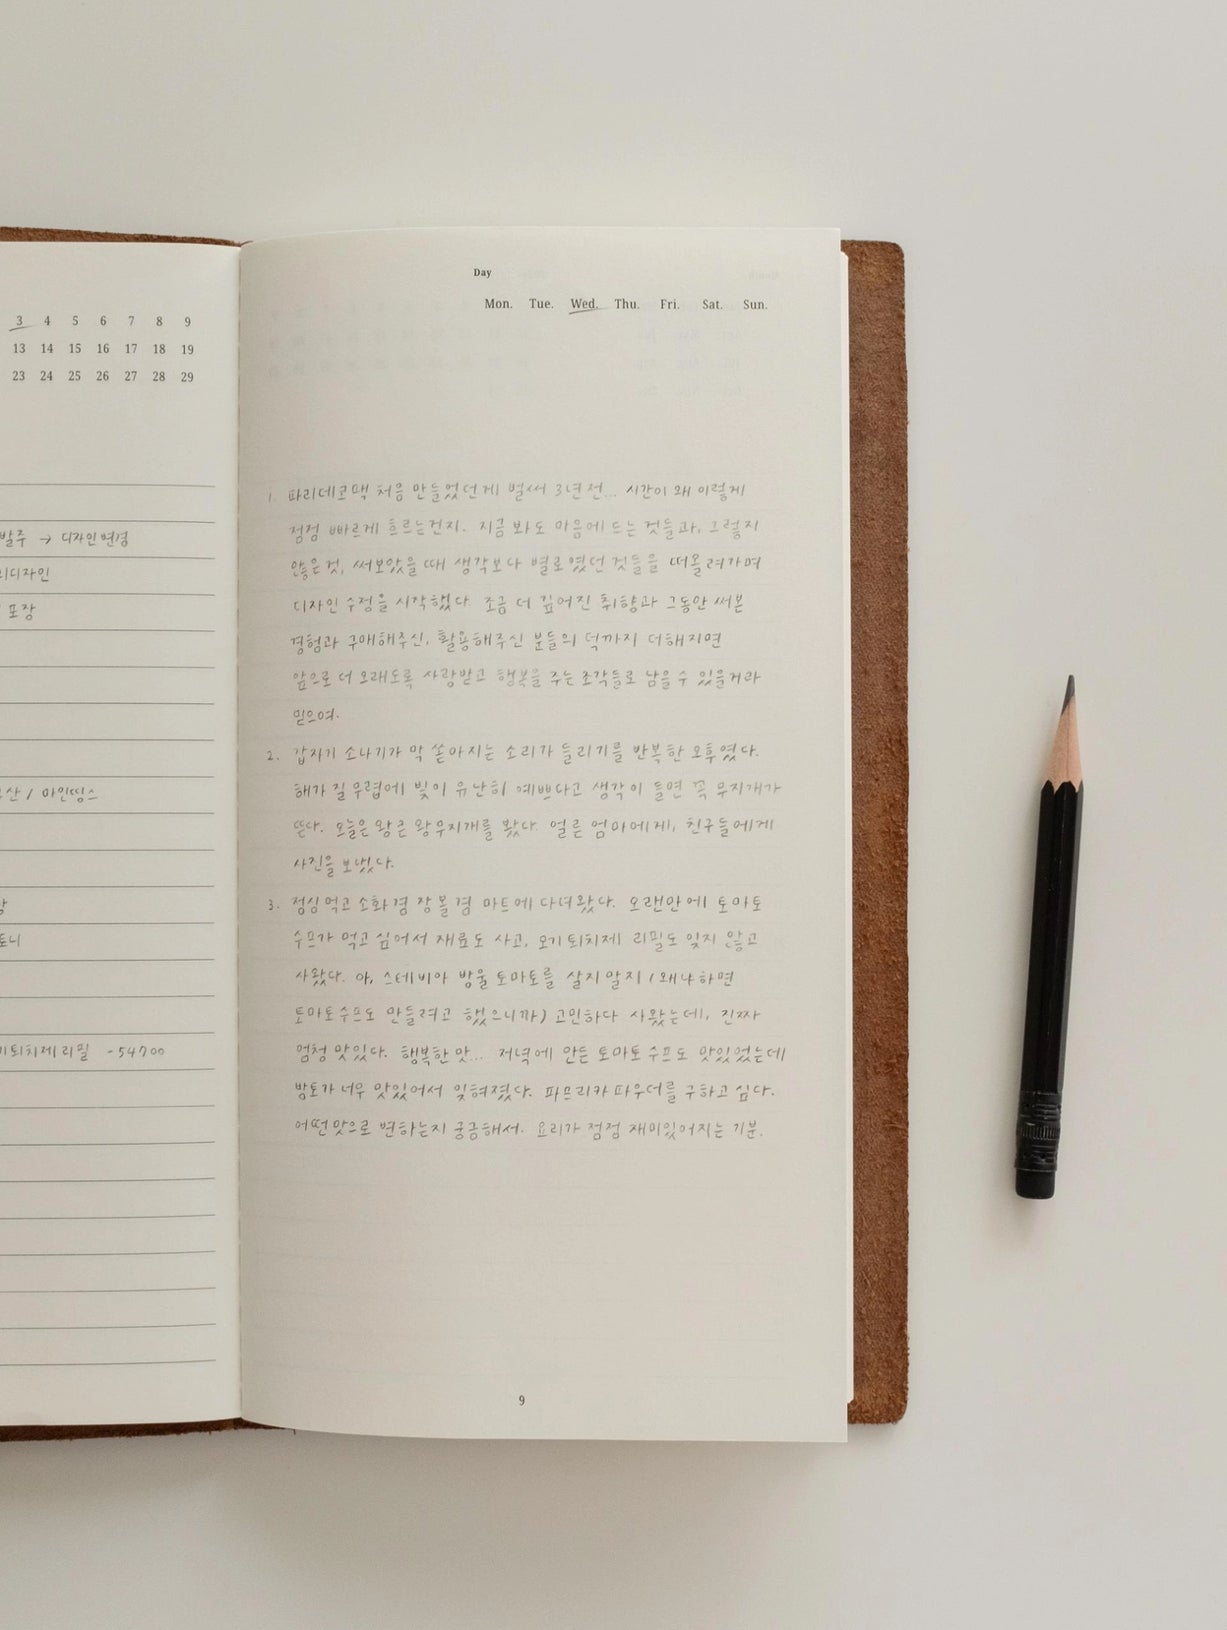 3 4 5 6 7 8 9
13 14 15 16 17 18 19
23 24 25 26 27 28 29
발주 → 디자인 변경
디자인
포장
산 / 마인띵스
토니
퇴치제 리필 -54700
Day
Mon. Tue. Wed. Thu. Fri. Sat. Sun.
1. 파리데코팩 처음 만들었던게 벌써 3년 전... 시간이 왜 이렇게
점점 빠르게 흐르는건지. 지금 봐도 마음에 드는 것들과, 그렇지
않은 것, 써보았을 때 생각보다 별로였던 것들을 떠올려가며
디자인 수정을 시작했다. 조금 더 깊어진 취향과 그동안 써본
경험과 구매해주신, 활용해주신 분들의 덕까지 더해지면
앞으로 더 오래도록 사랑받고 행복을 주는 조각들로 남을 수 있을거라
믿으며.
2. 갑자기 소나기가 막 쏟아지는 소리가 들리기를 반복한 오후였다.
해가 질 무렵에 빛이 유난히 예쁘다고 생각이 들면 꼭 무지개가
뜬다. 오늘은 왕큰 왕무지개를 봤다. 얼른 엄마에게, 친구들에게
사진을 보냈다.
3. 점심먹고 소화겸 장볼겸 마트에 다녀왔다. 오랜만에 토마토
수프가 먹고 싶어서 재료도 사고, 모기 퇴치제 리필도 잊지 않고
사왔다. 아, 스테비아 방울토마토를 살지말지 (왜냐하면
토마토수프도 만들려고 했으니까) 고민하다 사왔는데, 진짜
엄청 맛있다. 행복한 맛... 저녁에 만든 토마토 수프도 맛있었는데
방토가 너무 맛있어서 잊혀졌다. 파프리카 파우더를 구하고 싶다.
어떤맛으로 변하는지 궁금해서. 요리가 점점 재미있어지는 기분.
9